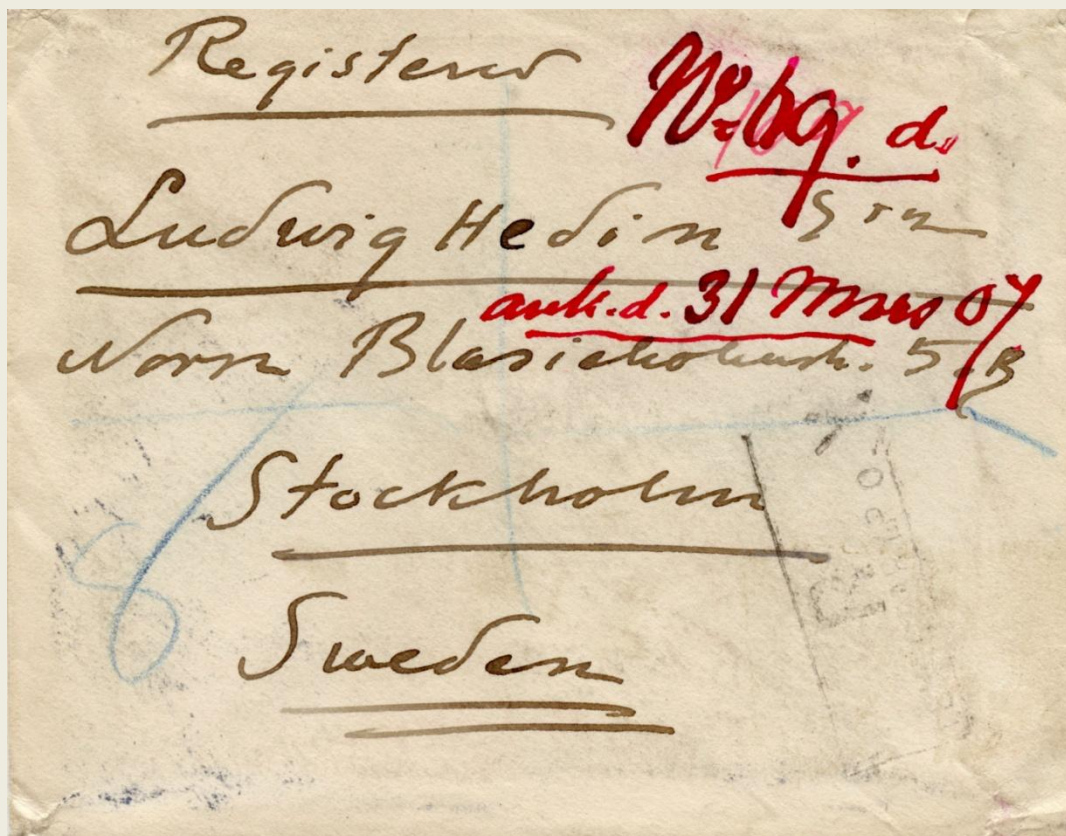 Registered
No 69. d.
Ludwig Hedin Esqre
ank. d. 31 Mars 07
Norra Blasieholmsh. 5.B
Stockholm
Sweden